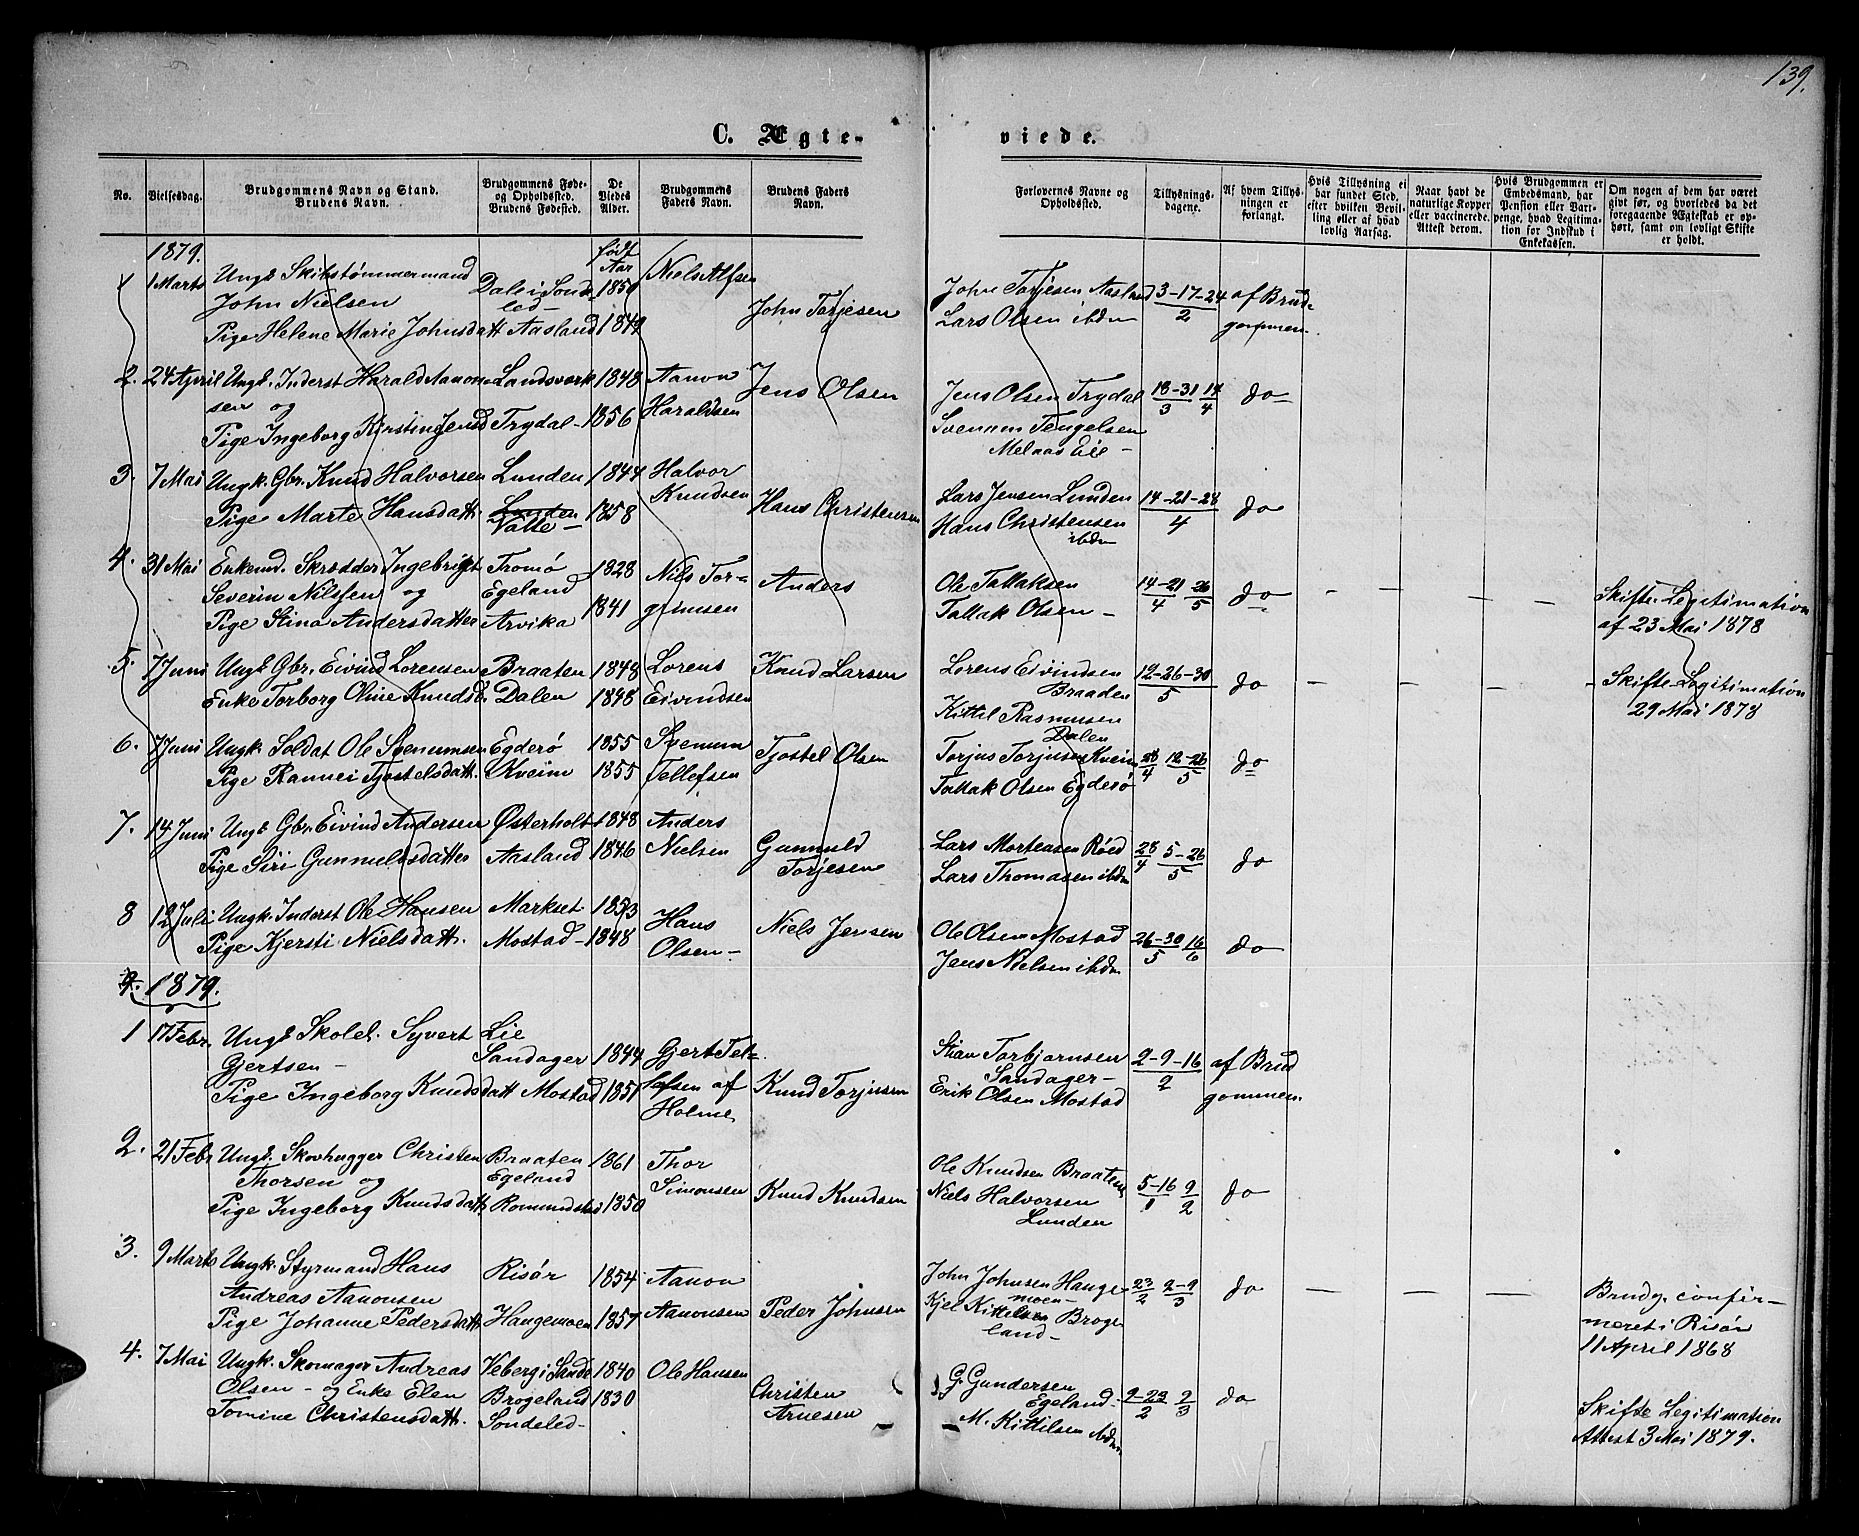 139.
C. Ægte-
viede.
No.
Vielsesdag.
Brudgommens Navn og Stand.
Brudens Navn.
Brudgommens Føde-
og Opholdssted.
Brudens Fødested.
De
Viedes
Alder.
Brudgommens
Faders Navn.
Brudens Faders
Navn.
Forlovernes Navne og
Opholdssted.
Tillysnings-
dagene.
Af hvem Tillys-
ningen er
forlangt.
Hvis Tillysning ei
har fundet Sted,
efter hvilken Bevil-
ling eller af hvad
lovlig Aarsag.
Naar havt de
naturlige Kopper
eller vaccinerede.
Attest derom.
Hvis Brudgommen er
Embedsmand, har
Pension eller Vart-
penge, hvad Legitima-
tion for Indskud i
Enkekassen.
Om nogen af dem har været
gift før, og hvorledes da det
foregaaende Ægteskab er op-
hørt, samt om lovligt Skifte
er holdt.
1879.
født
Aar
1 1 Marts Ungk. Skibstømmermand Dale i Sønde- 1850 Niels Alfsen
John Nielsen led
Pige Helene Marie Johnsdatt Aasland 1849 John Torjesen
John Torjesen Aasland 3-17-24 af Brud-
Lars Olsen ibdm 2 gommen
2. 24 April Ungk. Inderst Harald Aanon- Landsverk 1848 Aanon Jens Olsen
sen og Haraldsen
Pige Ingeborg Kirstine Jensd Trydal 1856
Jens Olsen Trydal 18-31 14 do
Svenum Tengelsen 3 4
Melaas Eie -
3. 7 Mai Ungk. Gbr. Knud Halvorsen Lunden 1844 Halvor
Knudsen
Pige Marte Hansdatt. Lunden 1858 Hans Christensen
Valle -
Lars Jensen Lunden 14-21-28 do
Hans Christensen 4
ibdm
4. 31 Mai Enkemd. Skrædder Ingebrigt Tromø 1828 Niels Tor- Anders
Severin Nilssen og Egeland grimsen
Pige Stina Andersdatter Arvika 1841
Ole Tallaksen 14-21 26 do - - - - Skifte Legitimation
Tallak Olsen - 4 5 af 23 Mai 1878
5. 7 Juni Ungk. Gbr. Eivind Lorensen Braaten 1848 Lorens Knud Larsen
Enke Torborg Oline Knudsd. Dalen 1848 Eivindsen
Lorens Eivindsen 12-26-30 do - - - - Skifte-Legitimation
Braaden 5 29 Mai 1878
Kittil Rasmusen
Dalen
6. 7 Juni Ungk. Soldat Ole Svenumsen Egderø 1855 Svenum Tjostel Olsen
Pige Rannei Tjostelsdatt. Kveim 1855 Tellefsen
Torjus Torjusen Kveim 28 12-26 do
Tallak Olsen Egderø 4 5
7. 14 Juni Ungk. Gbr. Eivind Andersen Østerholt 1848 Anders
Pige Siri Gunnulfsdatter Aasland 1846 Nielsen Gunnuld
Torjesen
Lars Mortensen Røed 28 5-26 do
Lars Thomasen ibdm 4 5
8 12 Juli Ungk. Inderst Ole Hansen Markset 1853 Hans Niels Jensen
Pige Kjersti Nielsdatt. Mostad 1848 Olsen -
Ole Olsen Mostad 26-30 16 do
Jens Nielsen ibdm 5 6
9. 1879.
1 17 Febr. Ungk. Skolel. Syvert Lie
Gjertsen - Sandager 1844 Gjert Tel-
Pige Ingeborg Knudsdatt Mostad 1851 lefsen af Knud Torjusen
Holme
Stian Torbjørnsen 2-9-16 af Brud
Sandager - 2 gommen
Erik Olsen Mostad
2. 21 Febr Ungk. Skovhugger Christen Braaten 1861 Thor
Thorsen og Egeland Simonsen
Pige Ingeborg Knudsdatt. Romundstad 1850 Knud Knudsen
Ole Knudsen Braaten 5-16 9 do
Niels Halvorsen 1 2
Lunden
3. 9 Marts Ungk. Styrmand Hans Risør 1854 Aanon
Andreas Aanonsen
Pige Johanne Pedersdatt. Haugemoen 1857 Aanonsen Peder Johnsen
John Johnsen Hauge- 23 2-9 do - - - Brudg. confir-
moen 2 3 meret i Risør
Kjel Kittelsen Broge 11 April 1868
land -
4. 7 Mai Ungk. Skomager Andreas Veberg i Sønde 1840 Ole Hansen
Olsen - og Enke Elen Brogeland 1830 Christen
Tomine Christensdatt. Søndeled - Arnesen
G. Gundersen 9-23 2 do
Egeland 2 3 Skifte Legitimation
M. Kittilsen ibdm Attest 3 Mai 1879.